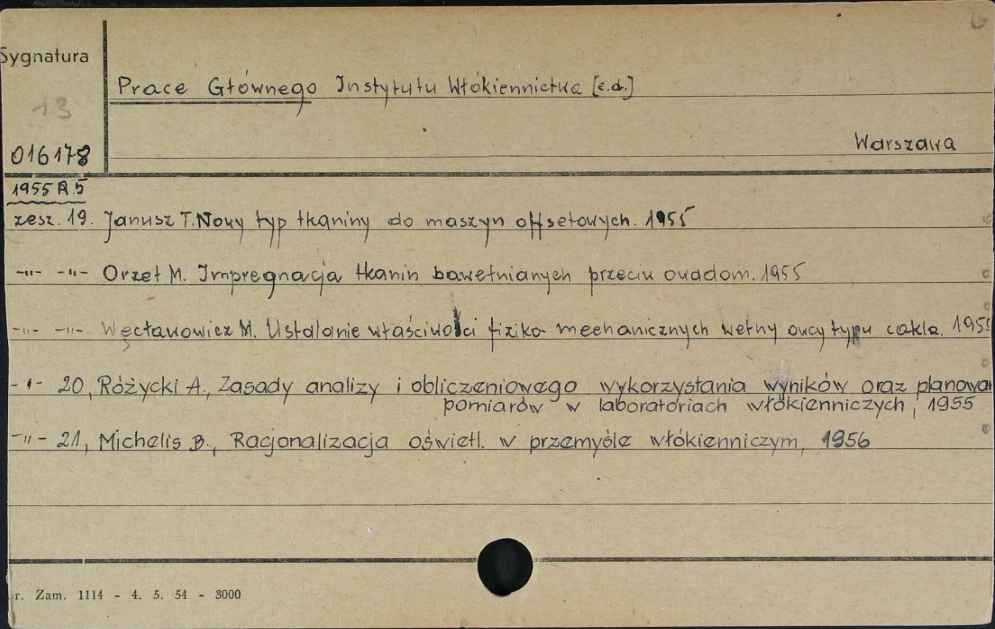 Sygnatura
13
Prace Głównego Instytutu Włókiennictwa [c.d.]
016178
Warszawa
1955 R.5
zesz. 19. Janusz T. Nowy typ tkaniny do maszyn offsetowych. 1955
-"- -"- Orzeł M. Impregnacja tkanin bawełnianych przeciw owadom. 1955
-"- -"- Węcławowicz M. Ustalanie właściwości fiziko-mechanicznych wełny owcy typu cakla. 1955
-"- 20, Różycki A., Zasady analizy i obliczeniowego wykorzystania wyników oraz planowan
pomiarów w laboratoriach włókienniczych, 1955
-"- 21, Michelis B., Racjonalizacja oświetl. w przemyśle włókienniczym, 1956
r. Zam. 1114 - 4. 5. 54 - 3000